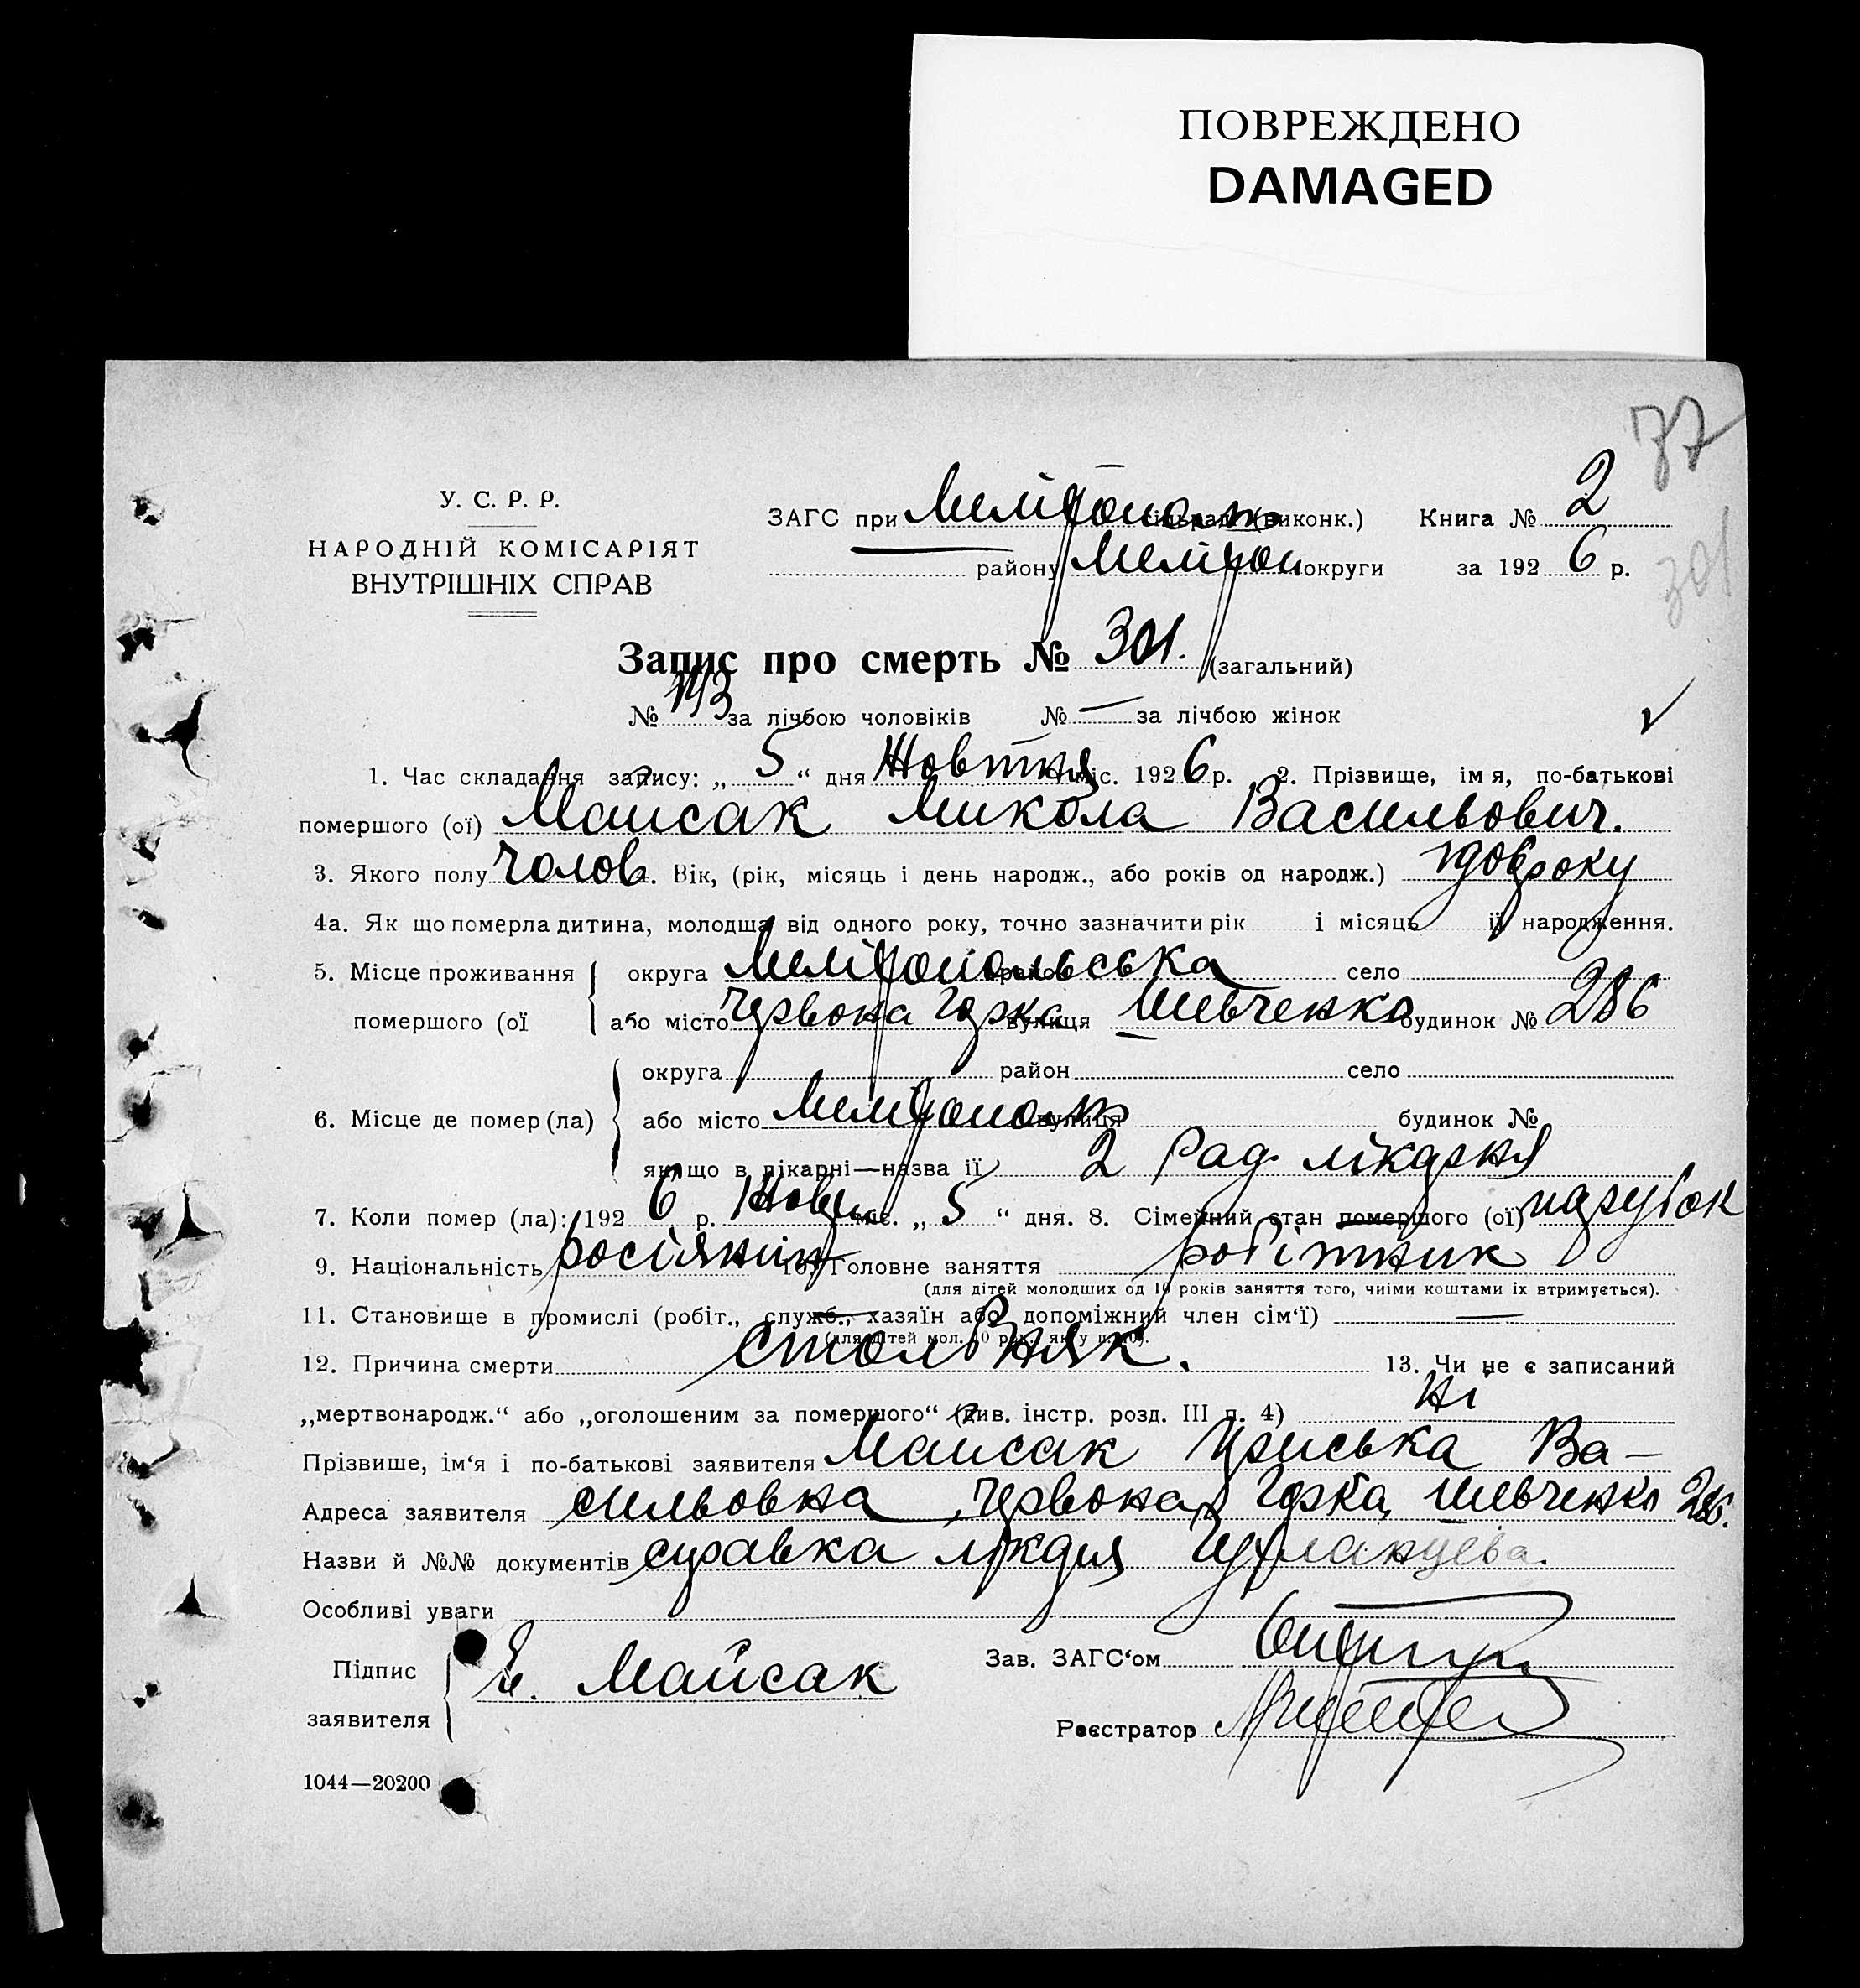 ПОВРЕЖДЕНО
DAMAGED
77
У. С. Р. Р.
НАРОДНІЙ КОМІСАРІЯТ
ВНУТРІШНІХ СПРАВ
ЗАГС при Меліτополь (виконк.) Книга № 2
району Меліτоп округи за 1926 р.
301
Запис про смерть № 301. (загальний)
№ за лічбою чоловіків № — за лічбою жінок
1. Час складання запису: „ 5 “ дня Жовтня міс. 1926 р. 2. Прізвище, імя, по-батькові
помершого (ої) Майсак Микола Васильович.
3. Якого полу чолов. Вік, (рік, місяць і день народж., або років од народж.) року
4а. Як що померла дитина, молодша від одного року, точно зазначити рік і місяць її народження.
5. Місце проживання округа Мелітопольська район село
помершого (ої або місто Червона Горка вулиця Шевченко будинок № 286
округа район село
6. Місце де помер (ла) або місто Мелітополь вулиця будинок №
якщо в лікарні—назва ії 2 Рад. лікарня
7. Коли помер (ла): 1926 р. Жовт. міс. „ 5 “ дня. 8. Сімейний стан помершого (ої) парубок
9. Національність росіянин 10. Головне заняття робітник
(для дітей молодших од 10 років заняття того, чиїми коштами їх втримується).
11. Становище в промислі (робіт., служб., хазяїн або допоміжний член сім‘ї) —
(для дітей мол. 10 рок. як у п. 10).
12. Причина смерти столбняк. 13. Чи не є записаний
„мертвонародж.“ або „оголошеним за помершого“ (див. інстр. розд. III п. 4) Ні
Прізвише, ім‘я і по-батькові заявителя Майсак Ва-
Адреса заявителя сильовна, Червона Горка, Шевченко 286.
Назви й №№ документів справка
Особливі уваги
Підпис заявителя Е. Майсак
Зав. ЗАГС‘ом
Реєстратор
1044—20200